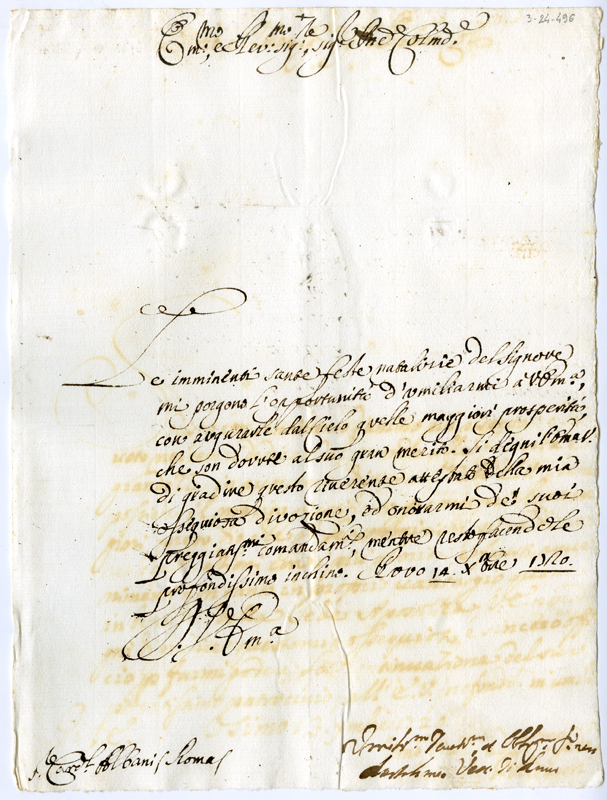 3-24-496
Em.mo, e Rev.mo Sig.re, Sig.re Pnd Colmd.e
Le imminenti sante feste natalizie del Signore
mi porgono l'opportunità d'umiliarmi à V. Em.a,
con augurarle dal Cielo quelle maggiori prosperità,
che son dovute al suo gran merito. Si degni l'Em.a V.
di gradire questo riverente attestato della mia
ossequiosa divozione, ed onorarmi de' suoi
preggiatis.mi comandam.ti, mentre resto facendole
profondissimo inchino. 14. Xbre 1720.
Di V. Em.a
S. Card.l Albani Roma
Umiliss.mo Devotiss.mo et Obligat.mo